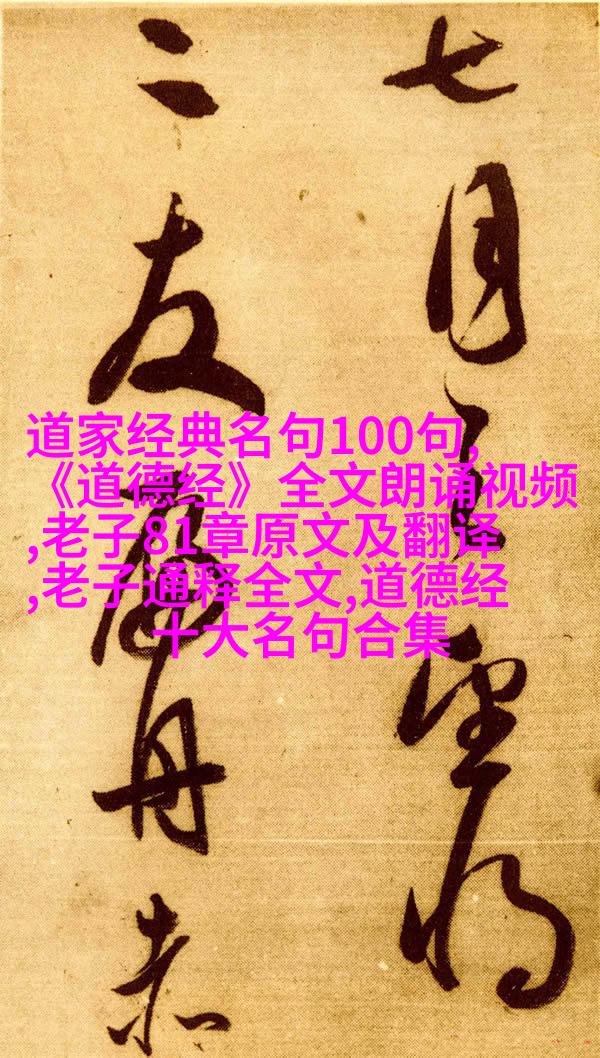 七月望将
二友舟赤
道家经典名句100句,
《道德经》全文朗诵视频
,老子81章原文及翻译
,老子通释全文,道德经
十大名句合集